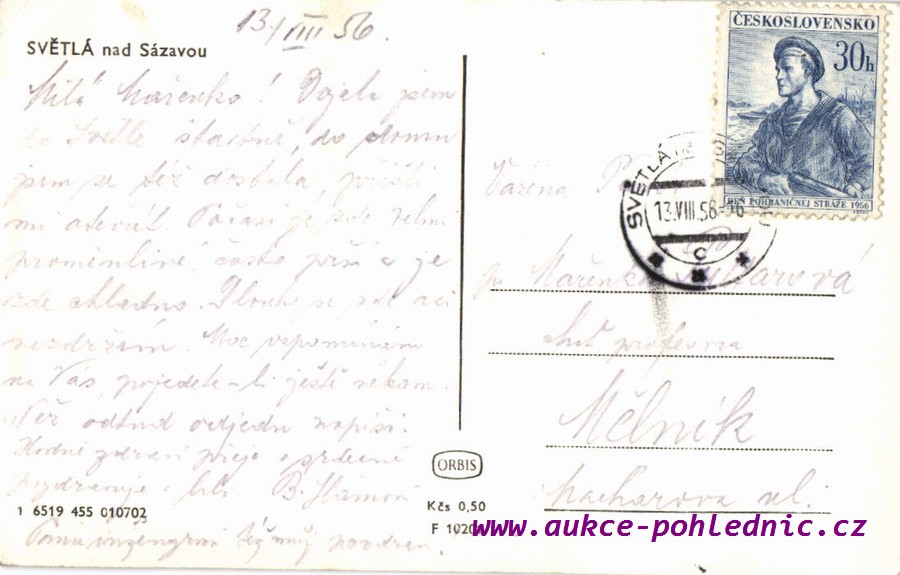 13/VIII 56.
SVĚTLÁ nad Sázavou
Milá Mařenko! Dojela jsem
do Světlé šťastně, do domu
jsem se též dostala, přišli
mi otevřít. Počasí je zde velmi
proměnlivé, často prší a je
zde chladno. Dlouho se zde asi
nezdržím. Moc vzpomínám
na Vás, pojedete-li ještě někam.
Než odtud odjedu napíši.
Hodně zdraví přeje a srdečně
pozdravuje B.
1 6519 455 010702
Panu inženýrovi též můj pozdrav.
ČESKOSLOVENSKO
30h
DEŇ POHRANIČNEJ STRÁŽE 1956
SVĚTLÁ
13.VIII.56-16
C
Vážená
Mařenka
chť profesora
Mělník
Macharova ul.
ORBIS
Kčs 0,50
F 1020
www.aukce-pohlednic.cz